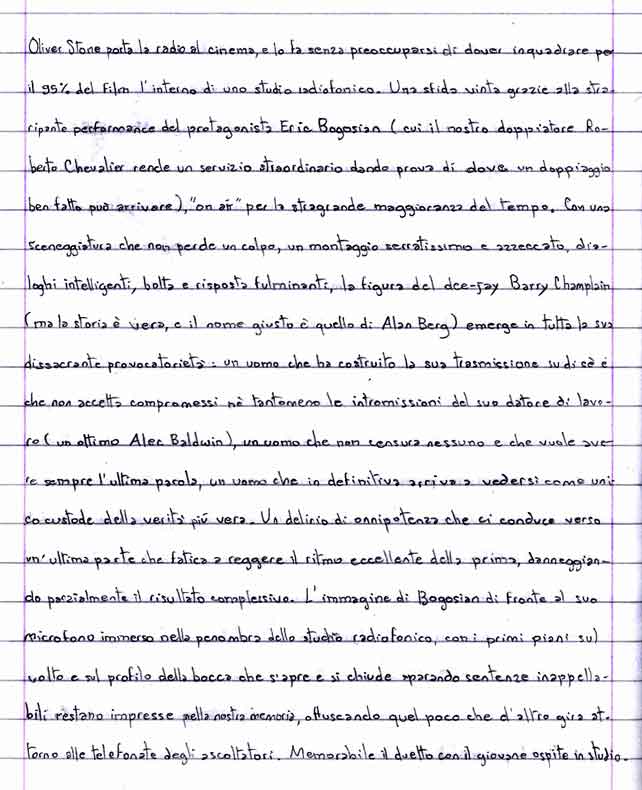 Oliver Stone porta la radio al cinema, e lo fa senza preoccuparsi di dover inquadrare per
il 95% del film l'interno di uno studio radiofonico. Una sfida vinta grazie alla stra-
ripante performance del protagonista Eric Bogosian (cui il nostro doppiatore Ro-
berto Chevalier rende un servizio straordinario dando prova di dove un doppiaggio
ben fatto può arrivare), "on air" per la stragrande maggioranza del tempo. Con una
sceneggiatura che non perde un colpo, un montaggio serratissimo e azzeccato, dia-
loghi intelligenti, botta e risposta fulminanti, la figura del dee-jay Barry Champlain
(ma la storia è vera, e il nome giusto è quello di Alan Berg) emerge in tutta la sua
dissacrante provocatorietà: un uomo che ha costruito la sua trasmissione su di sé e
che non accetta compromessi né tantomeno le intromissioni del suo datore di lavo-
ro (un ottimo Alec Baldwin), un uomo che non censura nessuno e che vuole ave-
re sempre l'ultima parola, un uomo che in definitiva arriva a vedersi come uni-
co custode della verità più vera. Un delirio di onnipotenza che ci conduce verso
un'ultima parte che fatica a reggere il ritmo eccellente della prima, danneggian-
do parzialmente il risultato complessivo. L'immagine di Bogosian di fronte al suo
microfono immerso nella penombra dello studio radiofonico, con i primi piani sul
volto e sul profilo della bocca che s'apre e si chiude sparando sentenze inappella-
bili restano impresse nella nostra memoria, offuscando quel poco che d'altro gira at-
torno alle telefonate degli ascoltatori. Memorabile il duetto con il giovane ospite in studio.